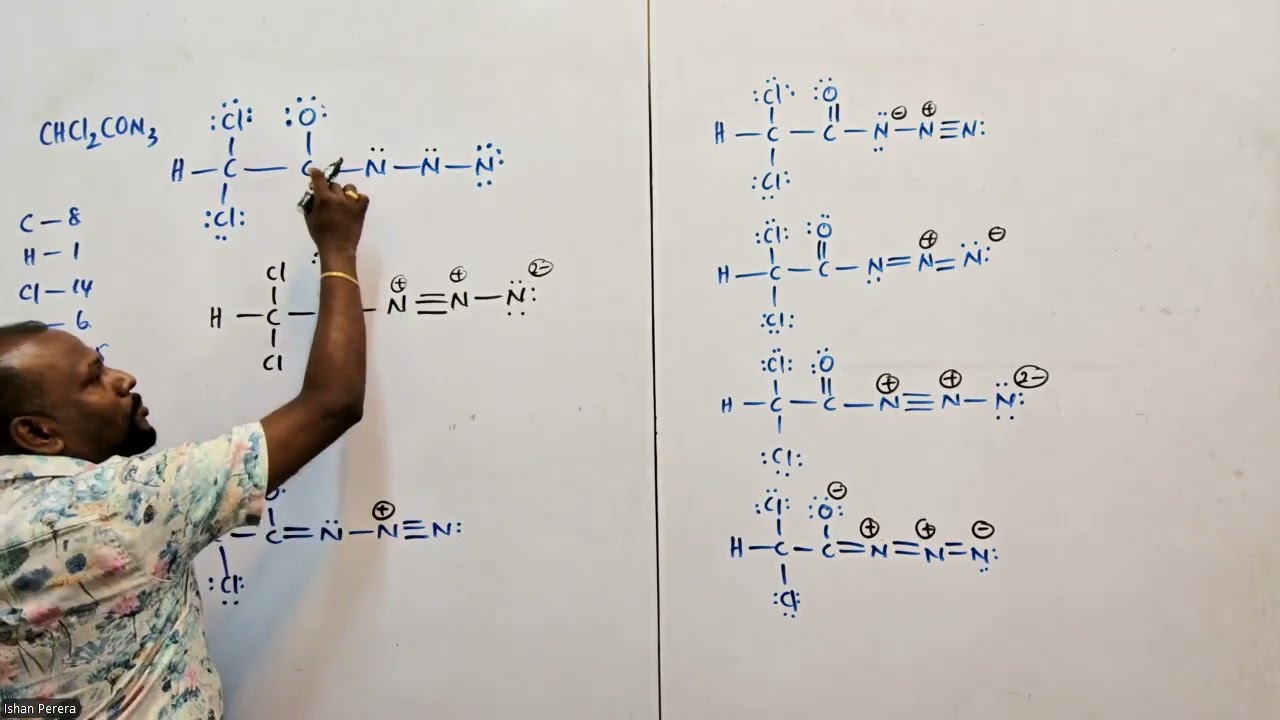 CHCl₂CON₃
:Cl: :O:
H — C — C — N — N — N:
:Cl:
C — 8
H — 1
Cl — 14
— 6
Cl ⊕ ⊕ 2-
H — C — — N ≡ N — N:
Cl
⊕
C = N — N ≡ N:
:Cl:
:Cl: :O ⊖ ⊕
H — C — C — N — N ≡ N:
:Cl:
:Cl: :O ⊕ ⊖
H — C — C — N = N = N:
:Cl:
:Cl: :O ⊕ ⊕ 2-
H — C — C — N ≡ N — N:
:Cl:
:Cl: :O: ⊖ ⊕ ⊕ ⊖
H — C — C = N = N = N:
:Cl:
Ishan Perera